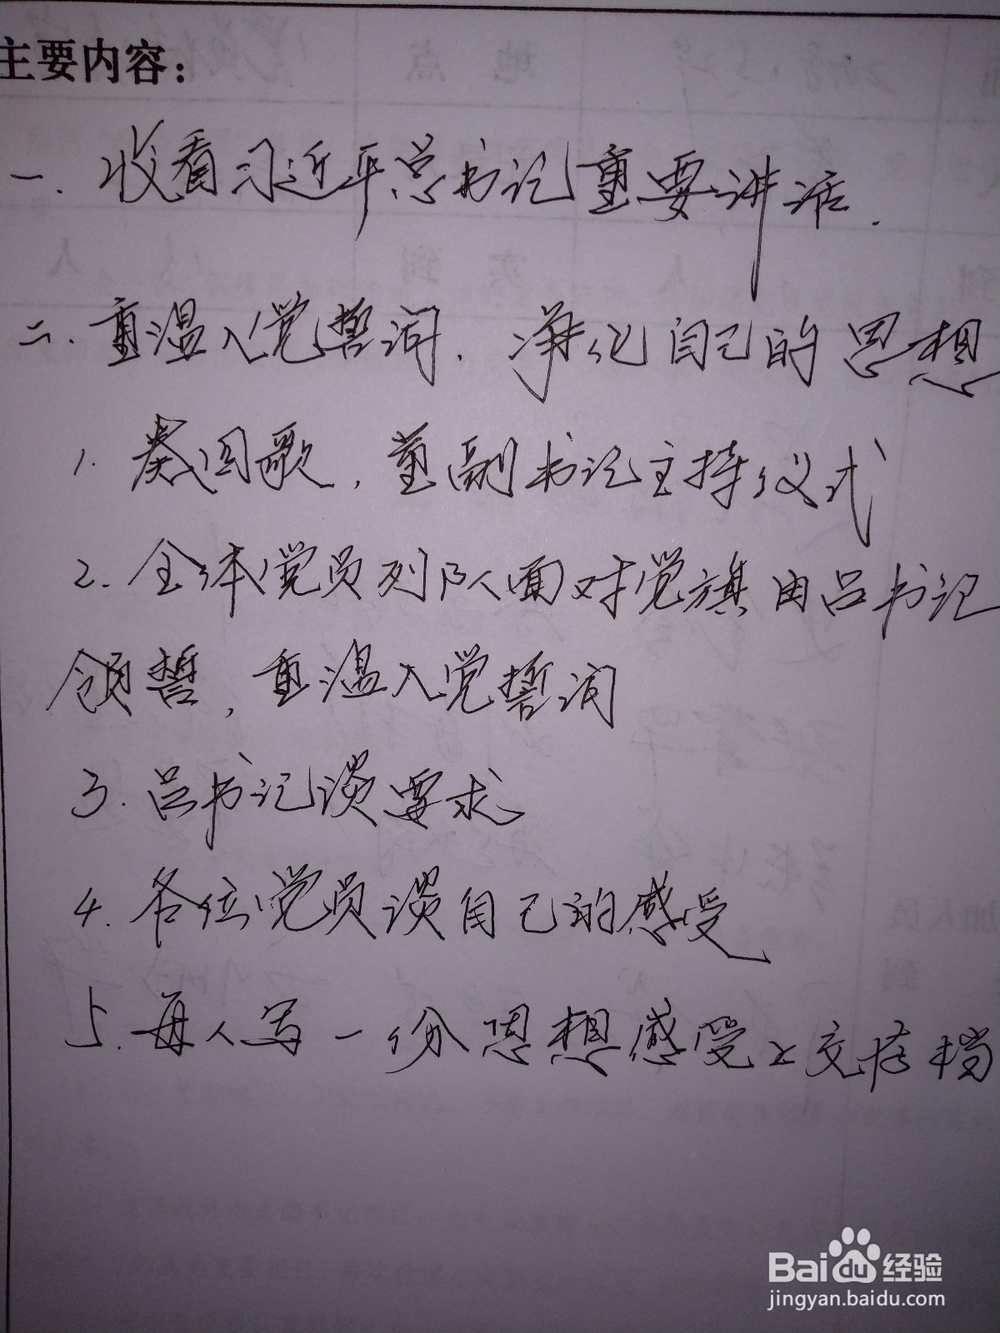 主要内容：
一. 收看习近平总书记重要讲话.
二. 重温入党誓词. 净化自己的思想
1. 奏国歌, 董副书记主持仪式
2. 全体党员列队面对党旗由吕书记
领誓, 重温入党誓词
3. 吕书记谈要求
4. 各位党员谈自己的感受
5. 每人写一份思想感受上交存档
Baidu经验
jingyan.baidu.com